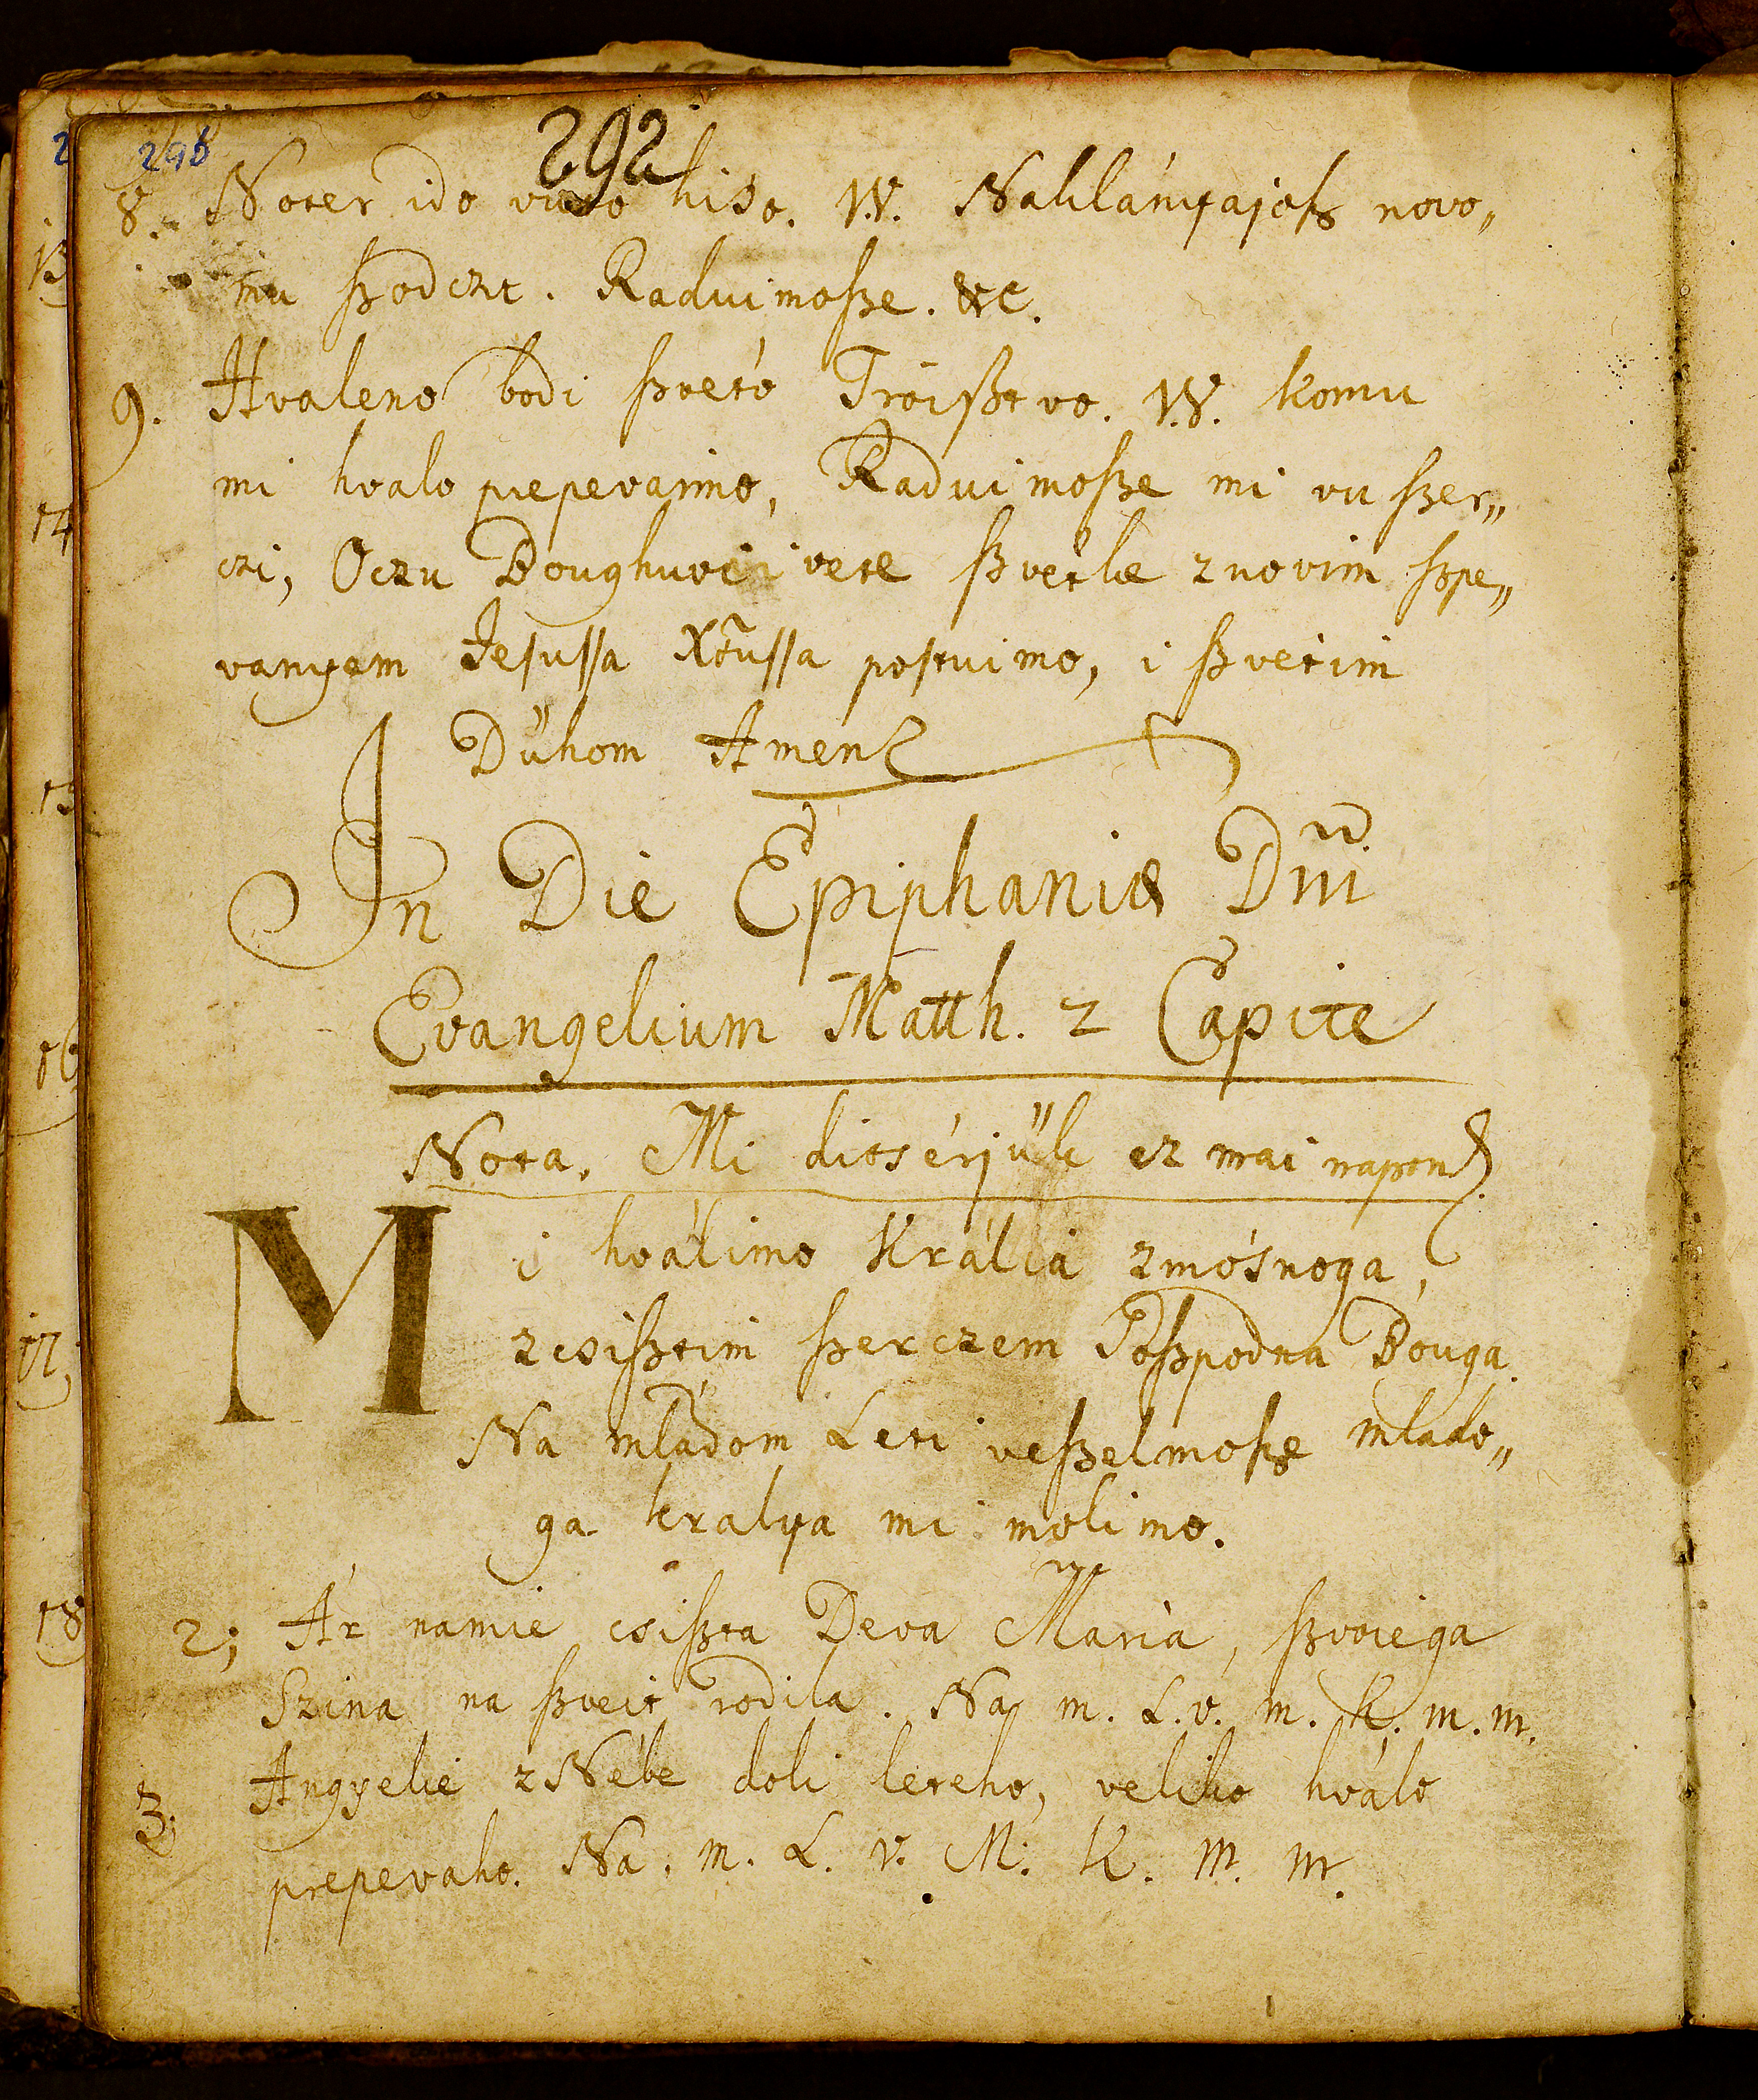 292
296
8. Noter ido vuto hiso. W. Naklányajoſz novo„
mu ſzodczt. Raduimoſze. etc.
9. Hvaleno bodi ſzveto Troiſztvo. W. komu
mi hvalo prepevamo, Raduimoſze mi vu ſzer„
czi, Oczu Boughuvi i vete ſzvetke znovim ſzpe„
vanyem Jeſuſſa Xtuſſa poſtuimo, i ſzvetim
Dűhom Amen
In Die Epiphaniæ Dni
Evangelium Matth. 2 Capite
Nota. Mi ditsérjűk ez mai napon
Mi hválimo Králiá zmósnoga,
zcsiſztim ſzerczem Goſzpodna Bouga.
Na mládom Leti veſzelmoſze mlado„
ga kralya mi molimo.
2; Ár namie csiſzta Deva Maria, ſzvoiega
Szina na ſzveit rodila. Na m. L. v. m. K. m. m.
3. Angyelie z Nébe doli leteho, veliko hválo
prepevaho. Na. m. L. v. M. K. m. m.
13
14
15
16
17
18